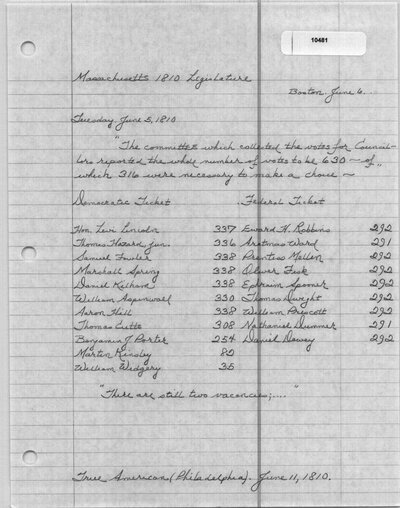 10481
Massachusetts 1810 Legislature
Boston. June 6.
Tuesday, June 5, 1810
"The committee which collected the votes for Council-
lors reported the whole number of votes to be 630 — of
which 316 were necessary to make a choice —"
Democratic Ticket Federal Ticket
Hon. Levi Lincoln 337 Edward H. Robbins 292
Thomas Hazard, jun. 336 Artemas Ward 291
Samuel Fowler 338 Prentiss Mellen 292
Marshall Spring 338 Oliver Fisk 292
Daniel Kilham 338 Ephraim Spooner 292
William Aspinwall 330 Thomas Dwight 292
Aaron Hill 338 William Prescott 292
Thomas Cutts 308 Nathaniel Dummer 291
Benjamin J. Porter 254 Daniel Dewey 292
Martin Kinsley 82
William Widgery 35
"There are still two vacancies;...."
True American (Philadelphia). June 11, 1810.